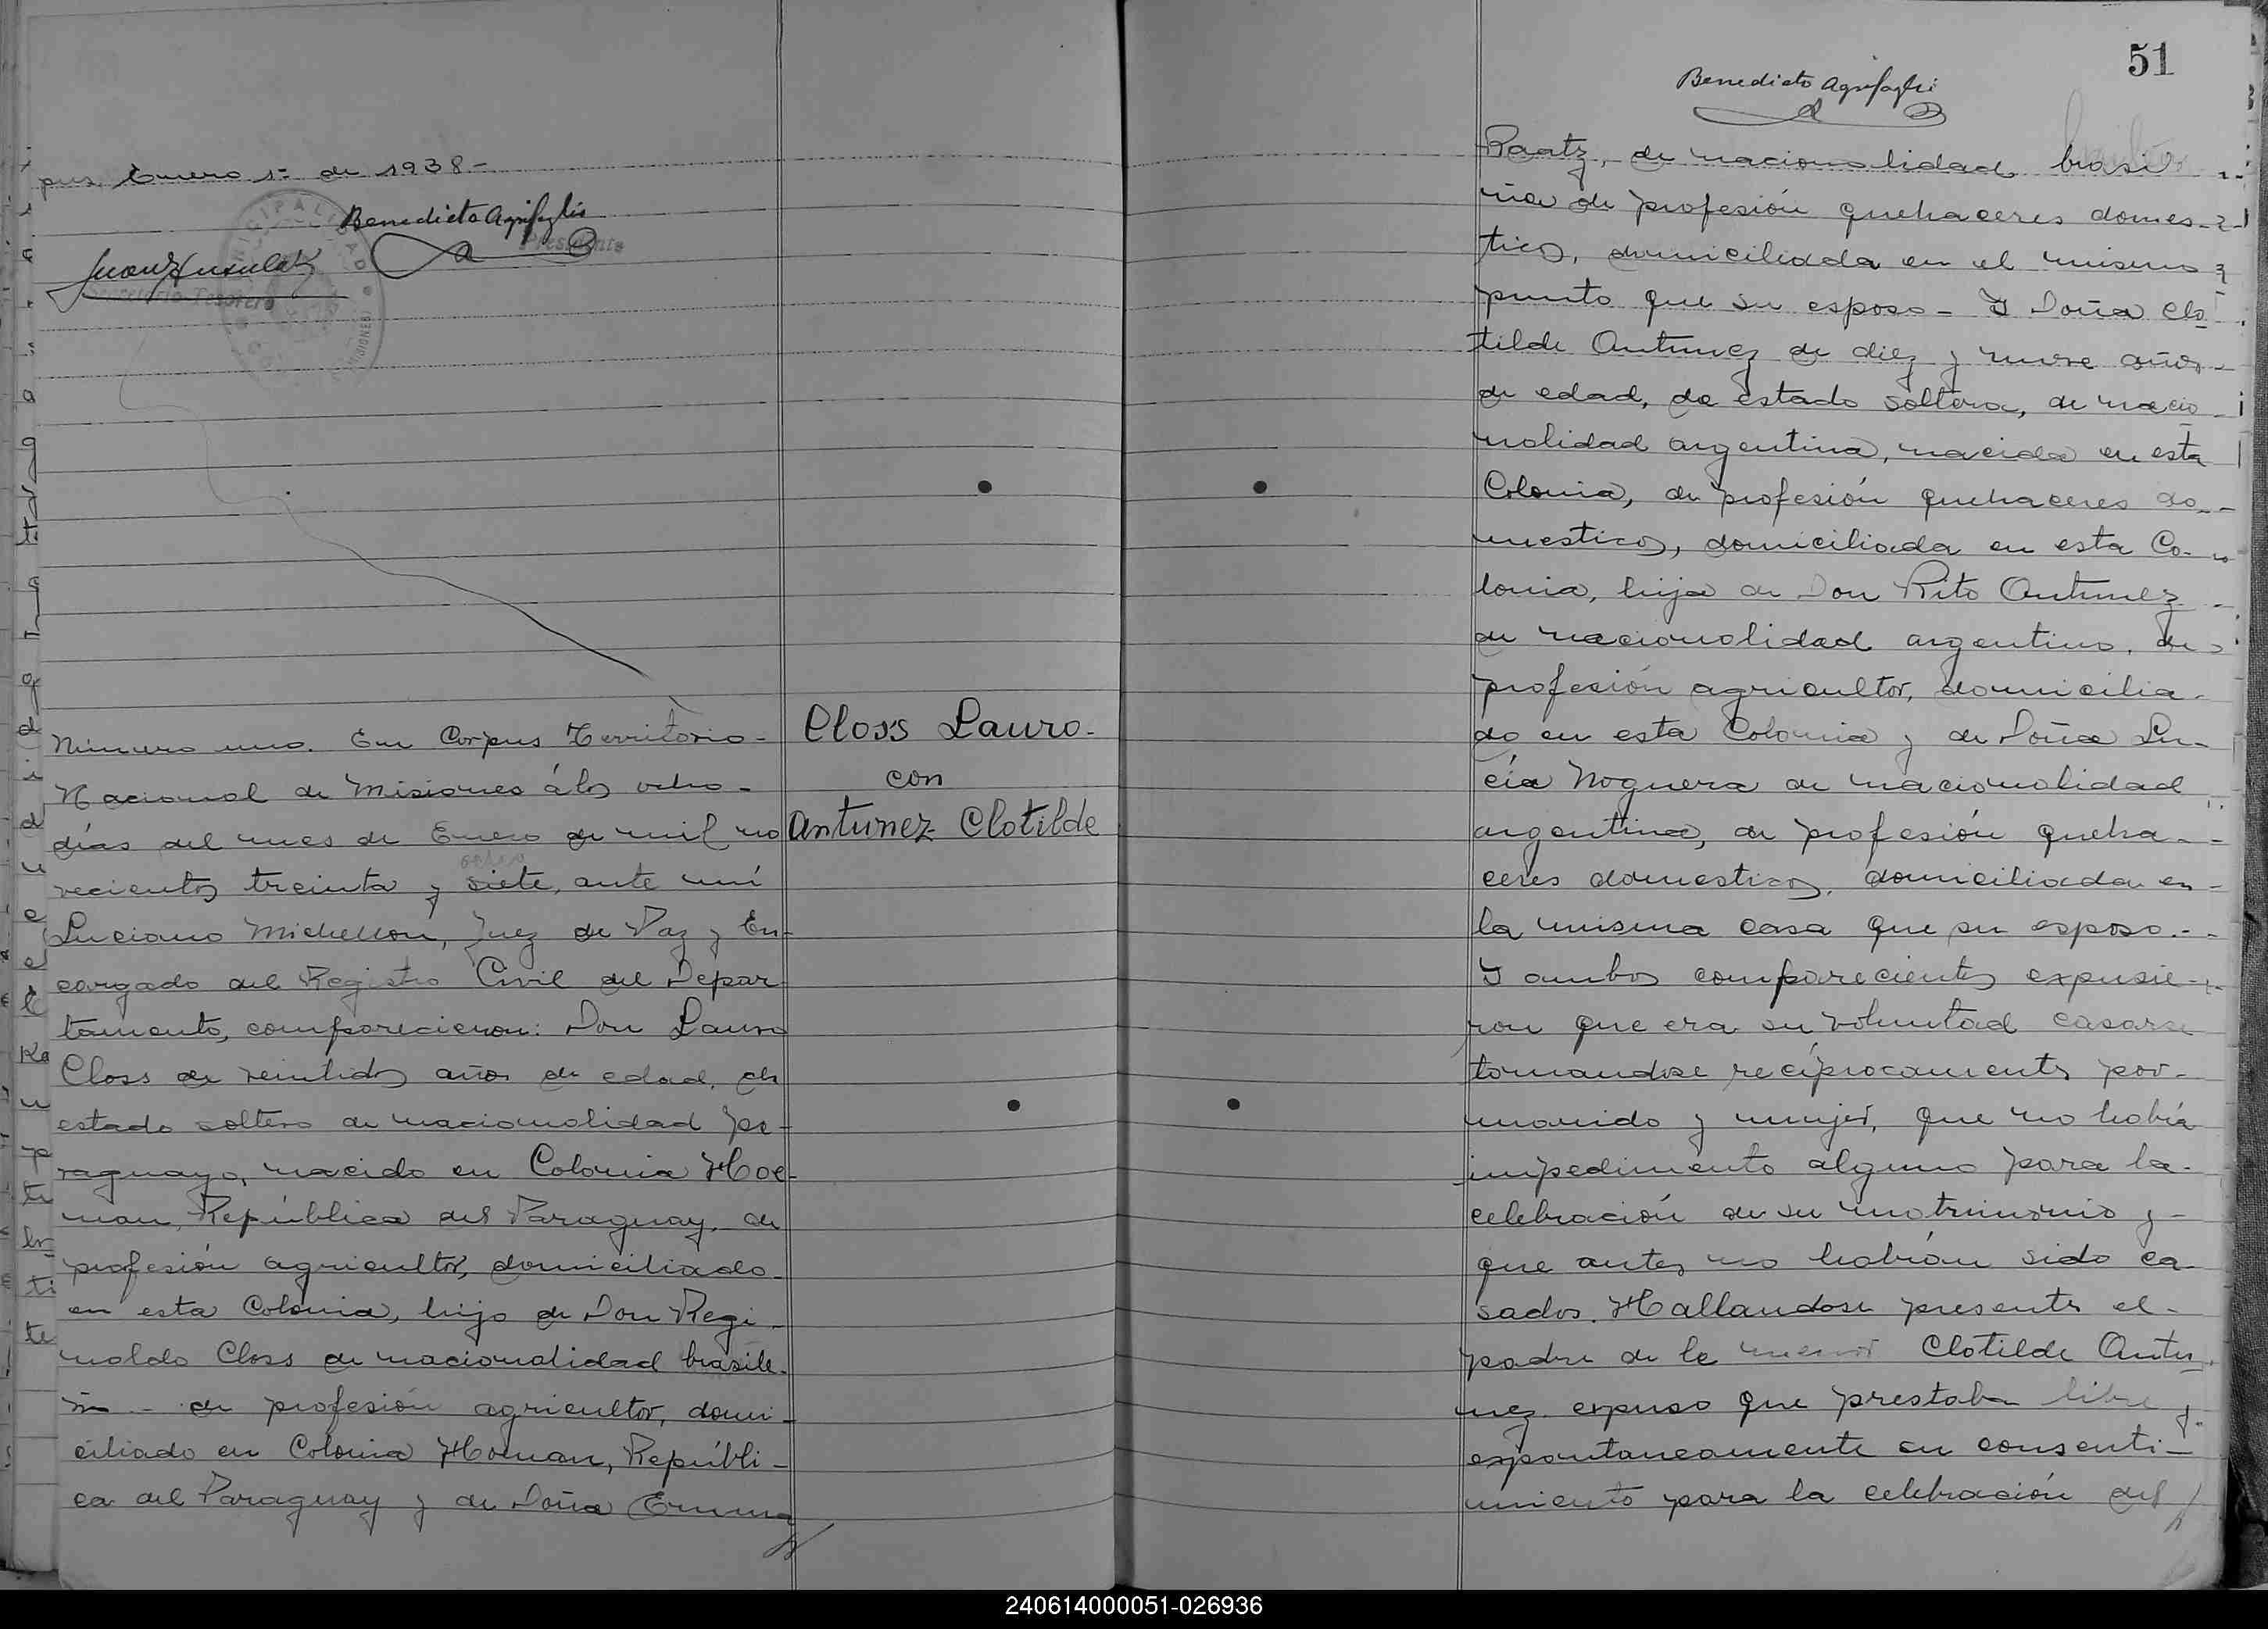 pus, Enero 1º de 1938.-
Benedicto Agrifoglio
Presidente
Secretario-Tesorero
MUNICIPALIDAD
(MISIONES)
Número uno. En Corpus Territorio-
Nacional de Misiones á los ocho-
días del mes de Enero de mil no
ocho
vecientos treinta y siete, ante mí
Luciano Michellon, Juez de Paz y En-
cargado del Registro Civil del Depar
tamento, comparecieron: Don Lauro
Closs de veintidos años de edad, de
estado soltero de nacionalidad pa-
raguayo, nacido en Colonia Hoe-
nau, República del Paraguay, de
profesión agricultor, domiciliado-
en esta Colonia, hijo de Don Regi-
naldo Closs de nacionalidad brasile-
ño - de profesión agricultor, domi-
ciliado en Colonia Hoenau, Repúbli-
ca del Paraguay y de Doña Emma
Closs Lauro.
con
Antunez Clotilde
51
Benedicto Agrifoglio
Raatz, de nacionalidad brasile
ña de profesión quehaceres domes-
ticos, domiciliada en el mismo
punto que su esposo - Y Doña Clo
tilde Antunez de diez y nueve años-
de edad, de estado soltera, de nacio-
nalidad argentina, nacida en esta
Colonia, de profesión quehaceres do-
mesticos, domiciliada en esta Co-
lonia, hija de Don Rito Antunez-
de nacionalidad argentino, de
profesión agricultor, domicilia-
do en esta Colonia y de Doña Lu-
cía Noguera de nacionalidad
argentina, de profesión queha-
ceres domesticos, domiciliada en-
la misma casa que su esposo.-
Y ambos comparecientes expusie-
ron que era su voluntad casarse
tomandose recíprocamente por-
marido y mujer, que no había
impedimento alguno para la-
celebración de su matrimonio y-
que antes no habían sido ca-
sados. Hallandose presente el-
padre de la menor Clotilde Antu-
nez expuso que prestaba libre y-
espontaneamente su consenti-
miento para la celebración del
240614000051-026936